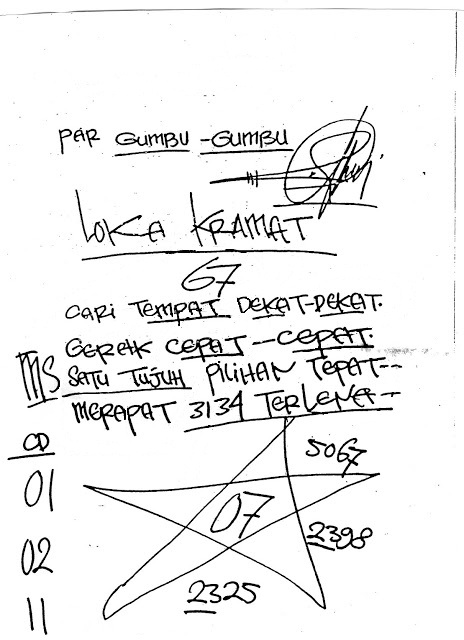 PAR GUMBU-GUMBU
LOKA KRAMAT
67
CARI TEMPAT DEKAT-DEKAT.
GERAK CEPAT--CEPAT
MS SATU TUJUH PILIHAN TEPAT--
MERAPAT 3134 TERLENA--
CD
5067
01
07
2398
02
2325
11